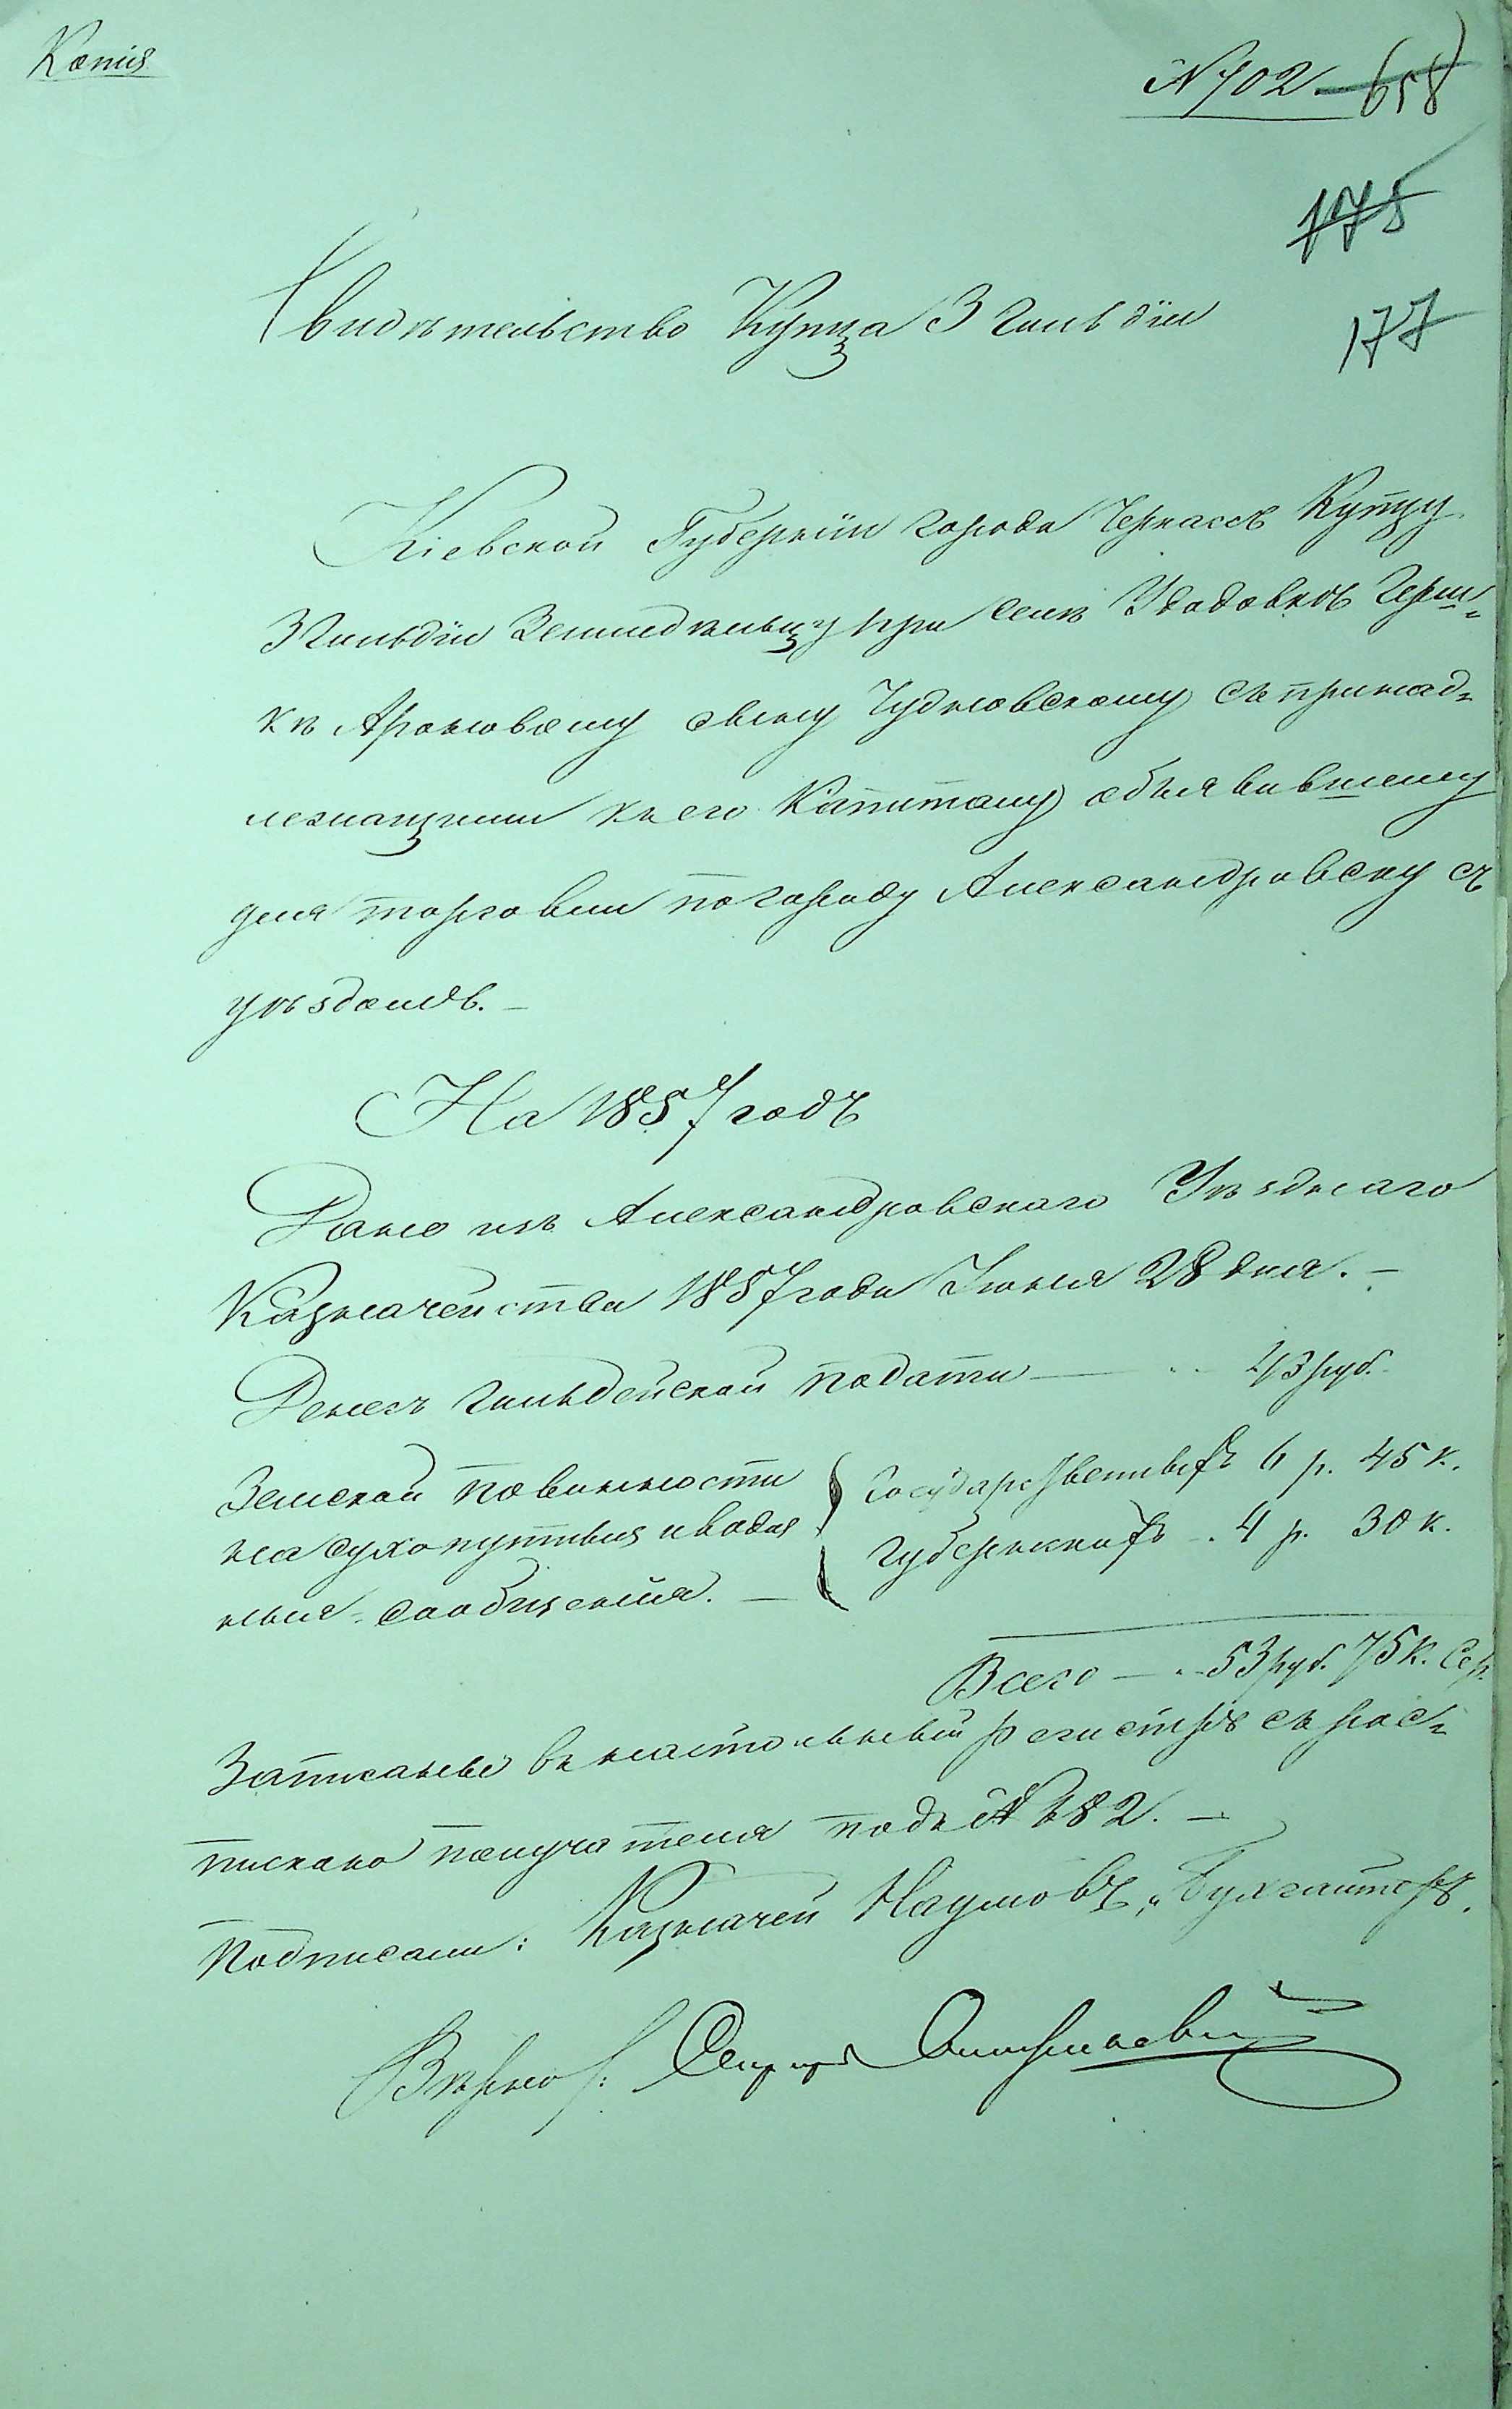 Копія
№ 702. 658
175
177
Свидѣтельство Купца 3 гильдіи
Кіевской Губерніи города Черкасъ Купцу
3 гильдіи Земледѣльцу при селѣ Герш-
кѣ Ароновому сыну Чудновскому съ принад-
лежащими къ его Капиталу объявившему
для торговли по городу Александровску съ
уѣздомъ.
На 1857 годъ
Дано изъ Александровскаго Уѣзднаго
Казначейства 1857 года Іюня 28 дня.
Денегъ гильдейской подати — 43 руб.
Земской повинности
на сухопутныя и водя
ныя сообщенія.
Государственныхъ 6 р. 45 к.
Губернскихъ 4 р. 30 к.
Всего — 53 руб. 75 к. Сер.
Записаны въ настольный регистръ съ рос-
пискою получателя подъ №
Подписали: Казначей Наумовъ, Бухгалтеръ.
Вѣрно: